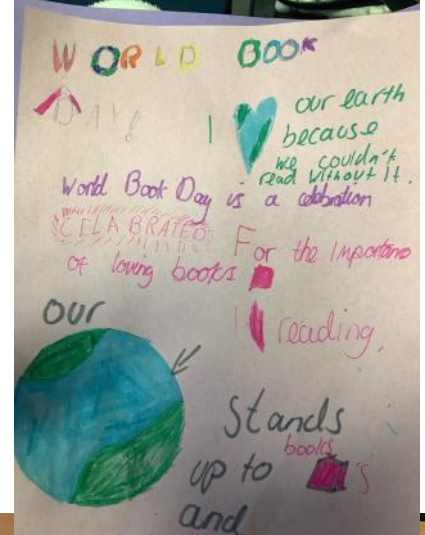 WORLD BOOK
DAY!
I our earth
because
we couldn't
read without it.
World Book Day is a celebration
CELABRATED
For the Importanc
of loving books
I reading
our
Stands
books
up to 's
and